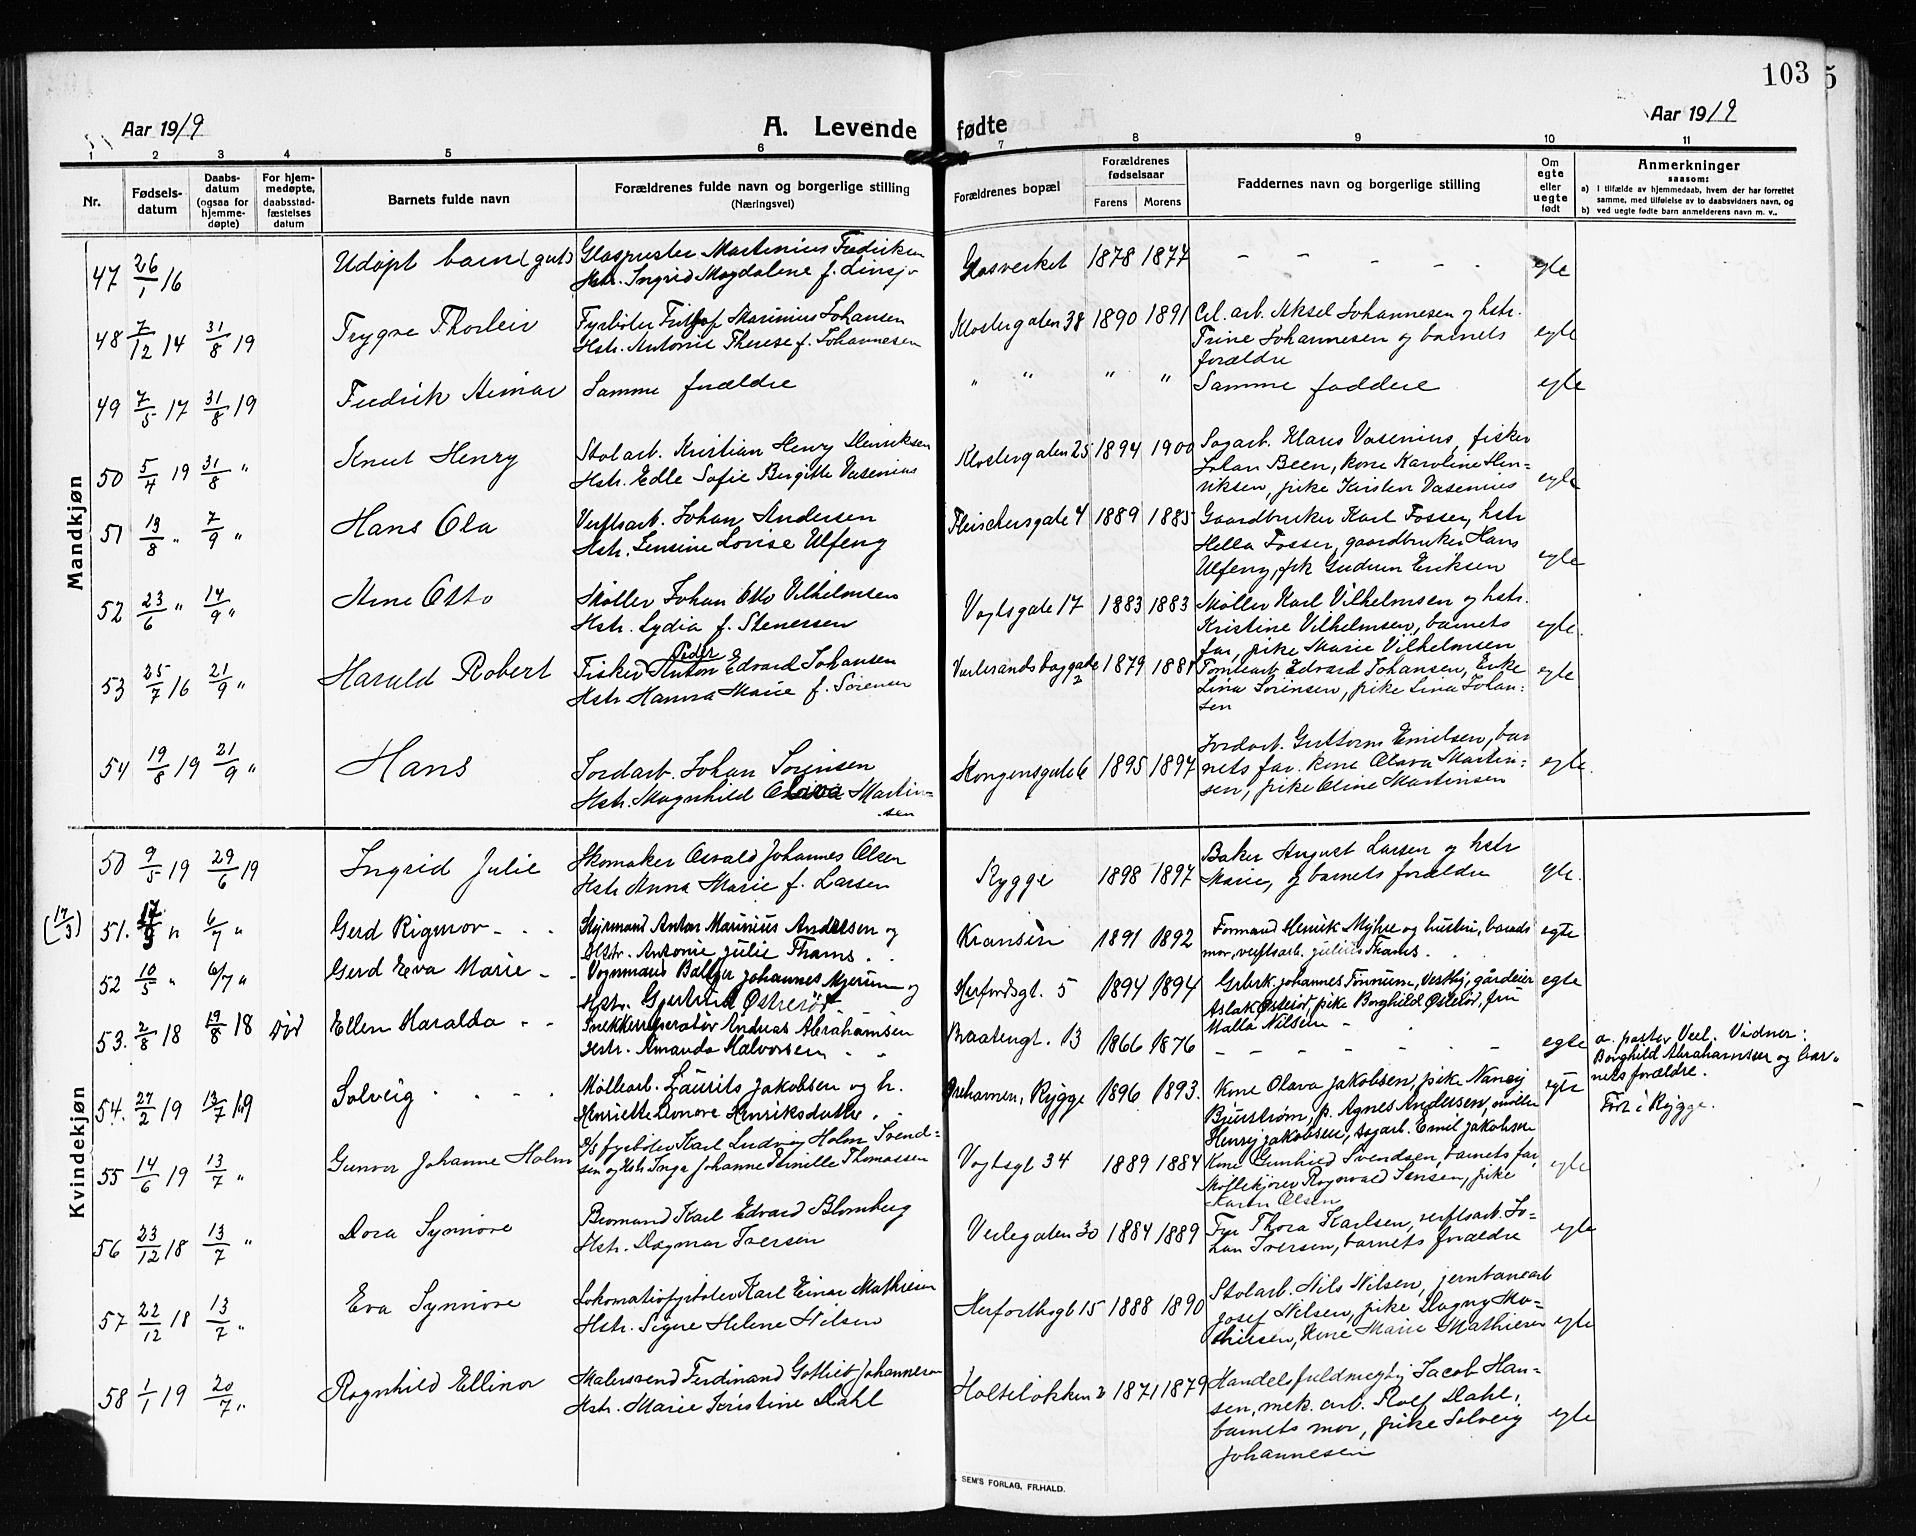 103
5
Aar 1919
A. Levende fødte
Aar 1919
1 2 3 4 5 6 7 8 9 10 11
Nr.
Fødsels-
datum
Daabs-
datum
(ogsaa for
hjemme-
døpte)
For hjem-
medøpte,
daabsstad-
fæstelses
datum
Barnets fulde navn
Forældrenes fulde navn og borgerlige stilling
(Næringsvei)
Forældrenes bopæl
Forældrenes
fødselsaar
Farens Morens
Faddernes navn og borgerlige stilling
Om
egte
eller
uegte
født
Anmerkninger
saasom:
a) I tilfælde av hjemmedaab, hvem der har forrettet
samme, med tilføielse av to daabsvidners navn, og
b) ved uegte fødte barn anmelderens navn m. v..
Mandkjøn
47 26/1 16 Udøpt barn (gut) Glaspuster Martinius Fredriksen Glasverket 1878 1877 - - - - - egte
Hstr. Ingrid Magdalene f. Linsjø
48 7/12 14 31/8 19 Trygve Thorleir Fyrbøter Fritjof Marinius Johansen Klostergaten 38 1890 1891 Cel. arb. Aksel Johannesen og hstr. egte
Hstr. Antonie Therese f. Johannesen Trine Johannesen og barnets
forældre
49 7/5 17 31/8 19 Fredrik Aimar Samme forældre " " " " Samme faddere egte
50 5/4 19 31/8 " Knut Henry Stolarb. Kristian Henry Henriksen Klostergaten 25 1894 1900 Sagarb. Klaus Vasenius, fisker
Hstr. Edle Sofie Birgitte Vasenius Johan Been, kone Karoline Hen-
riksen, pike Kirsten Vasenius egte
51 13/8 " 7/9 " Hans Ola Verftsarb. Johan Andersen Fleischersgate 4 1889 1885 Gaardbruker Karl Fosser, hstr
Hstr. Jensine Lovise Ulfeng Hella Fosser, gaardbruker Hans
Ulfeng, pk Gudrun Eriksen egte
52 23/6 " 14/9 " Arne Otto Møller Johan Otto Vilhelmsen Vogtsgate 17 1883 1883 Møller Karl Vilhelmsen og hstr.
Hstr. Lydia f. Stenersen Kristine Vilhelmsen, barnets egte.
far, pike Marie Vilhelmsen
Peder
53 25/7 16 21/9 " Harald Robert Fisker Anton Edvard Johansen 1879 1881 Tomtearb Edvard Johansen, Enke egte
Hstr Hanna Marie f. Sørensen Lina Sørensen, pike Lina Johan-
sen
54 19/8 19 21/9 " Hans Jordarb. Johan Sørensen Kongensgate 6 1895 1897 Jordarb. Guttorm Emilsen, bar egte.
Hstr. Magnhild Olava Martin- nets far. kone Olava Martin-
sen sen, pike Oline Martinsen
Kvindekjøn
50 9/5 19 29/6 19 Ingrid Julie Skomaker Osvald Johannes Olsen Rygge 1898 1897 Baker August Larsen og hstr egte.
Hstr Anna Marie f. Larsen Marie, og barnets forældre
(17/3) 51. 17/3 " 6/7 " Gerd Rigmor - . . Styrmand Anton Marinius Andersen og Kransen 1891 1892 Formand Henrik Myhre og hustru, barnets egte
Hstr. Antonie Julie Thams . . mor, verftsarb. Julius Thams.
52 10/5 " 6/7 " Gerd Eva Marie - . Vognmand Balzer Johannes Mjerum og Herfordsgt. 5 1894 1894 Grbrk. Johannes Tonnum, Vestby, gårdeier egte
Hstr. Gjertrud Østerød Aslak Østerød, pike Borghild Østerød, fru
Malla Nilsen -
53. 2/8 18 19/8 18 Død Ellen Haralda . . Snekkeroperatør Andreas Abrahamsen Braatengt. 13 1866 1876 - - - - - - egte a. pastor Veel. Vidner:
Hstr. Amanda Halvorsen . . Borghild Abrahamsen og bar-
nets forældre.
54. 27/2 19 13/7 19 Solveig . . . . Møllearb. Laurits Jakobsen og h. Ørehavnen, Rygge 1896 1893. Kone Olava Jakobsen, pike Nancy egte Født i Rygge.
Henriette Leonore Henriksdatter . . Bjurstrøm, p. Agnes Andersen, møller
Henry Jakobsen, sagarb. Emil Jakobsen
55 14/6 19 13/7 " Gunvor Johanne Holm D/S fyrbøter Karl Ludvig Holm Svend- Vogtsgt 34 1889 1884 Kone Gunhild Svendsen, barnets far, egte
sen og Hstr. Inga Johanne Pernille Thomassen Møllekjører Ragnvald Jensen, pike
Karen Olsen
56 23/12 18 13/7 " Dora Synnøve Bromand Karl Edvard Blomberg Verlegaten 30 1884 1889 Fru Thora Karlsen, verftsarb. Jo- egte
Hstr. Dagmar Iversen han Iversen, barnets forældre
57 22/12 18 13/7 " Eva Synnøve Lokomotivfyrbøter Karl Einar Mathisen Herfortsgt 15 1888 1890 Stolarb. Nils Nilsen, jernbanearb
Hstr. Signe Helene Nilsen Josef Nilsen, pike Dagny Ma-
thiesen, Kone Marie Mathiesen egte
58 1/1 19 20/7 " Ragnhild Ellinor Malersvend Ferdinand Gotlieb Johannesen Holteløkken 2 1871 1879 Handelsfuldmegtig Jacob Han-
Hstr. Marie Kristine Dahl sen, mek. arb. Rolf Dahl, egte
barnets mor, pike Solveig
Johannesen
SEM'S FORLAG, FR.HALD.